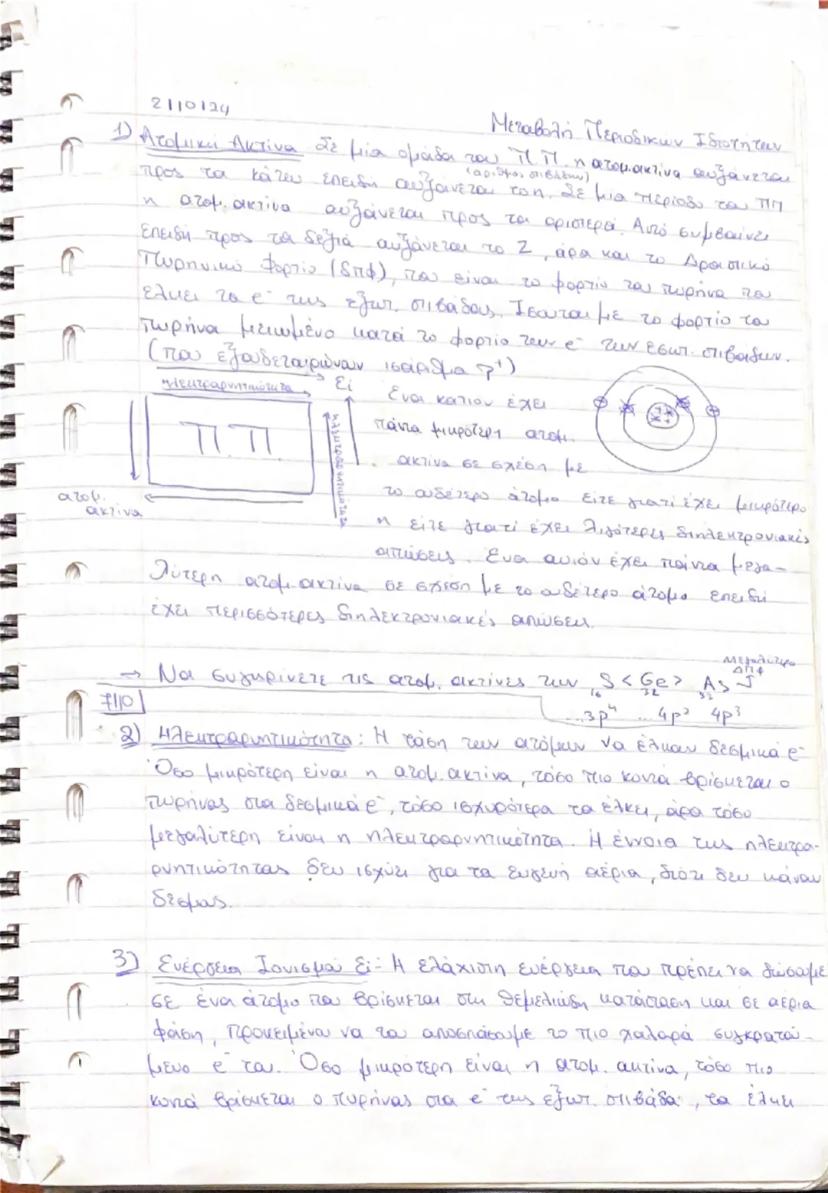 2/10/24
Μεταβολή Περιοδικών Ιδιοτήτων
1) Ατομική Ακτίνα Σε μία ομάδα του Π.Π. η ατομ. ακτίνα αυξάνεται
(αριθμός στιβάδων)
προς τα κάτω επειδή αυξάνεται το n. Σε μια περίοδο του ΠΠ
η ατομ. ακτίνα αυξάνεται προς τα αριστερά. Αυτό συμβαίνει
επειδή προς τα δεξιά αυξάνεται το Z, άρα και το Δραστικό
Πυρηνικό Φορτίο (δπφ), που είναι το φορτίο του πυρήνα που
έλκει τα e⁻ της εξωτ. στιβάδας. Ισούται με το φορτίο του
πυρήνα μειωμένο κατά το φορτίο των e⁻ των εσωτ. στιβάδων.
(που εξουδετερώνουν ισάριθμα p⁺)
ηλεκτραρνητικότητα
Ei
Π.Π.
ηλεκτραρνητικότητα
ατομ.
ακτίνα
Ένα κατιόν έχει
πάντα μικρότερη ατομ.
ακτίνα σε σχέση με
το ουδέτερο άτομο είτε γιατί έχει μικρότερο
n είτε γιατί έχει λιγότερες διηλεκτρονιακές
απώσεις. Ένα ανιόν έχει πάντα μεγα-
λύτερη ατομ. ακτίνα σε σχέση με το ουδέτερο άτομο επειδή
έχει περισσότερες διηλεκτρονιακές απώσεις.
μεγαλύτερο
ΔΠΦ
→ Να συγκρίνετε τις ατομ. ακτίνες των ₁₆S < ₃₂Ge > ₃₃As
7/10
...3p⁴ ...4p² 4p³
2) Ηλεκτραρνητικότητα: Η τάση των ατόμων να έλκουν δεσμικά e⁻
Όσο μικρότερη είναι η ατομ. ακτίνα, τόσο πιο κοντά βρίσκεται ο
πυρήνας στα δεσμικά e⁻, τόσο ισχυρότερα τα έλκει, άρα τόσο
μεγαλύτερη είναι η ηλεκτραρνητικότητα. Η έννοια της ηλεκτρα-
ρνητικότητας δεν ισχύει για τα ευγενή αέρια, διότι δεν κάνουν
δεσμούς.
3) Ενέργεια Ιονισμού Ei - Η ελάχιστη ενέργεια που πρέπει να δώσουμε
σε ένα άτομο που βρίσκεται στη θεμελιώδη κατάσταση και σε αέρια
φάση, προκειμένου να του αποσπάσουμε το πιο χαλαρά συγκρατού-
μενο e⁻ του. Όσο μικρότερη είναι η ατομ. ακτίνα, τόσο πιο
κοντά βρίσκεται ο πυρήνας στα e⁻ της εξωτ. στιβάδα, τα έλκει